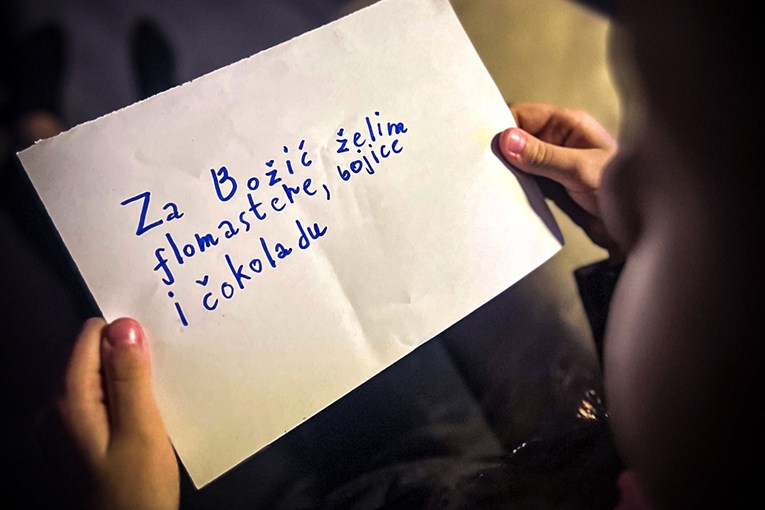 Za Božić želim
flomastere, bojice
i čokoladu